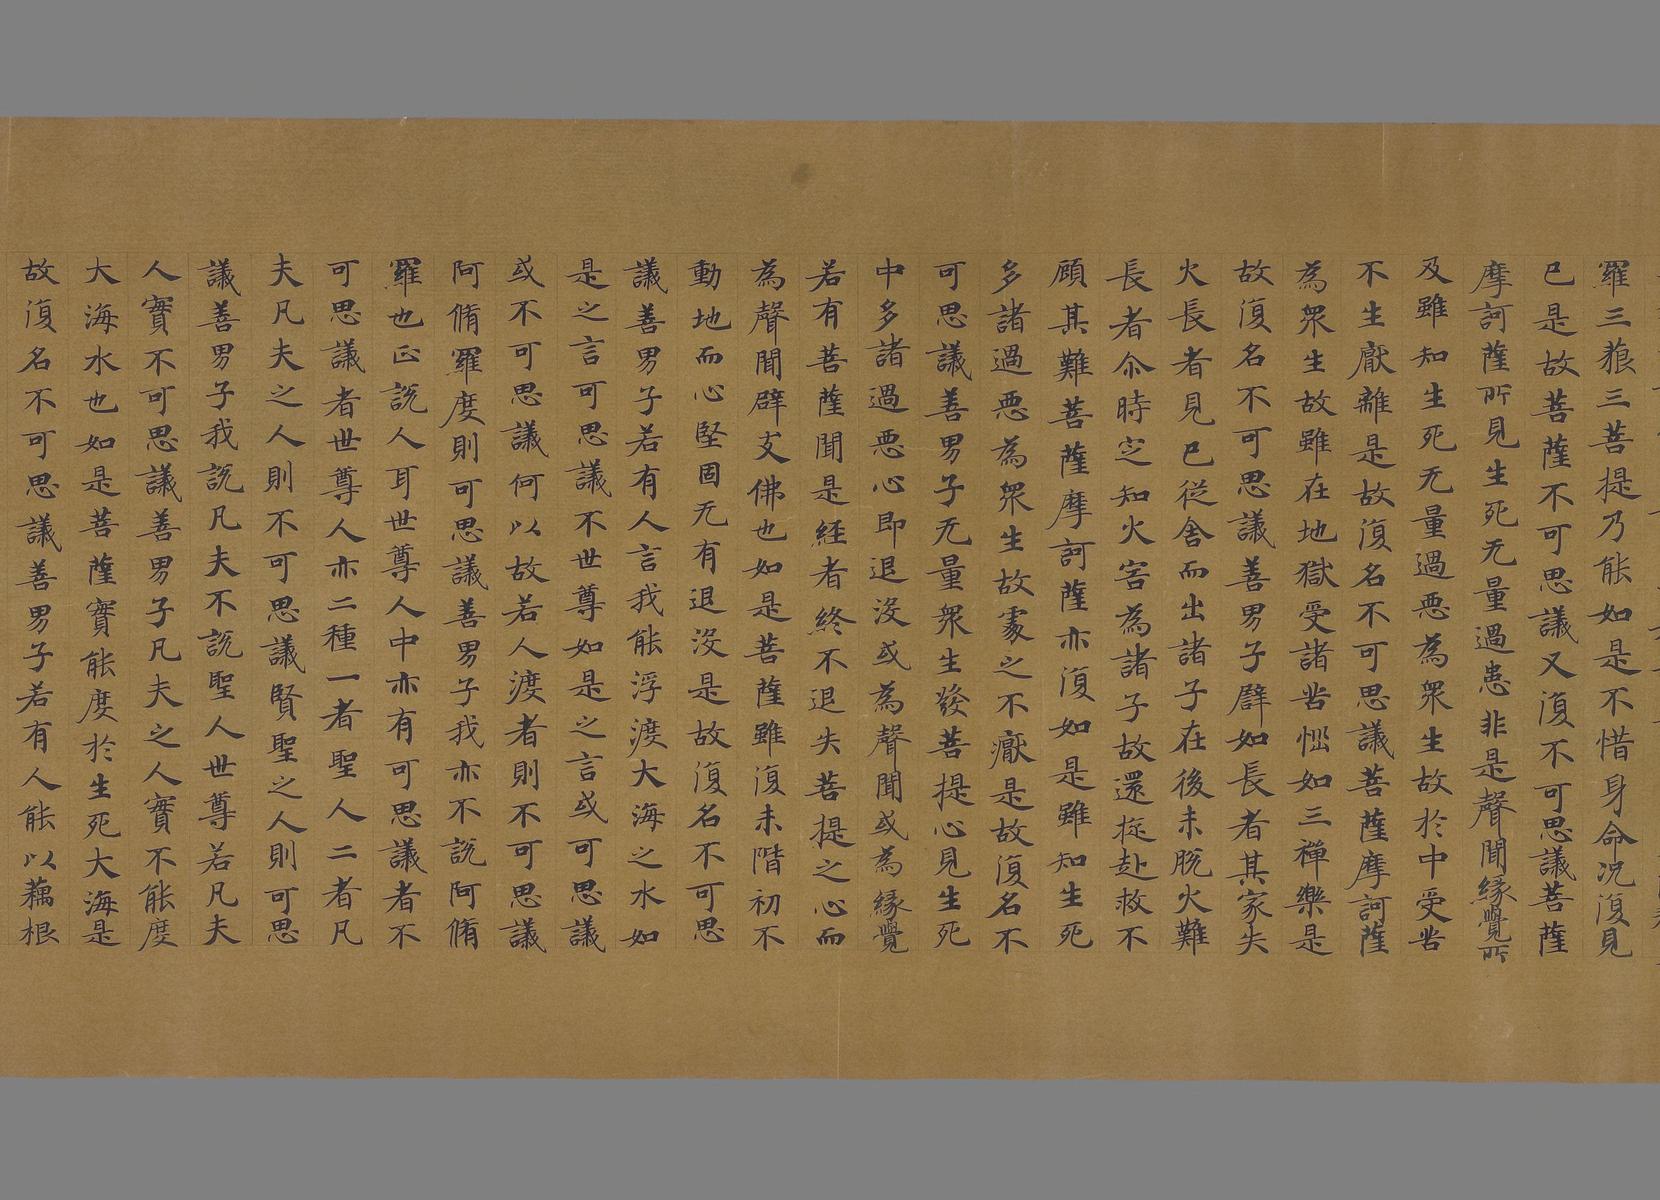 羅三藐三菩提乃能如是不惜身命況復見
已是故菩薩不可思議又復不可思議菩薩
摩訶薩所見生死无量過患非是聲聞緣覺所
及雖知生死无量過惡為衆生故於中受苦
不生厭離是故復名不可思議菩薩摩訶薩
為衆生故雖在地獄受諸苦惱如三禪樂是
故復名不可思議善男子譬如長者其家失
火長者見已從舍而出諸子在後未脫火難
長者尒時定知火害為諸子故還㧞赴救不
顧其難菩薩摩訶薩亦復如是雖知生死
多諸過惡為衆生故處之不厭是故復名不
可思議善男子无量衆生發菩提心見生死
中多諸過惡心即退沒或為聲聞或為緣覺
若有菩薩聞是經者終不退失菩提之心而
為聲聞辟支佛也如是菩薩雖復未階初不
動地而心堅固无有退沒是故復名不可思
議善男子若有人言我能浮渡大海之水如
是之言可思議不世尊如是之言或可思議
或不可思議何以故若人渡者則不可思議
阿脩羅度則可思議善男子我亦不說阿脩
羅也正說人耳世尊人中亦有可思議者不
可思議者世尊人亦二種一者聖人二者凡
夫凡夫之人則不可思議賢聖之人則可思
議善男子我說凡夫不說聖人世尊若凡夫
人實不可思議善男子凡夫之人實不能度
大海水也如是菩薩實能度於生死大海是
故復名不可思議善男子若有人能以藕根